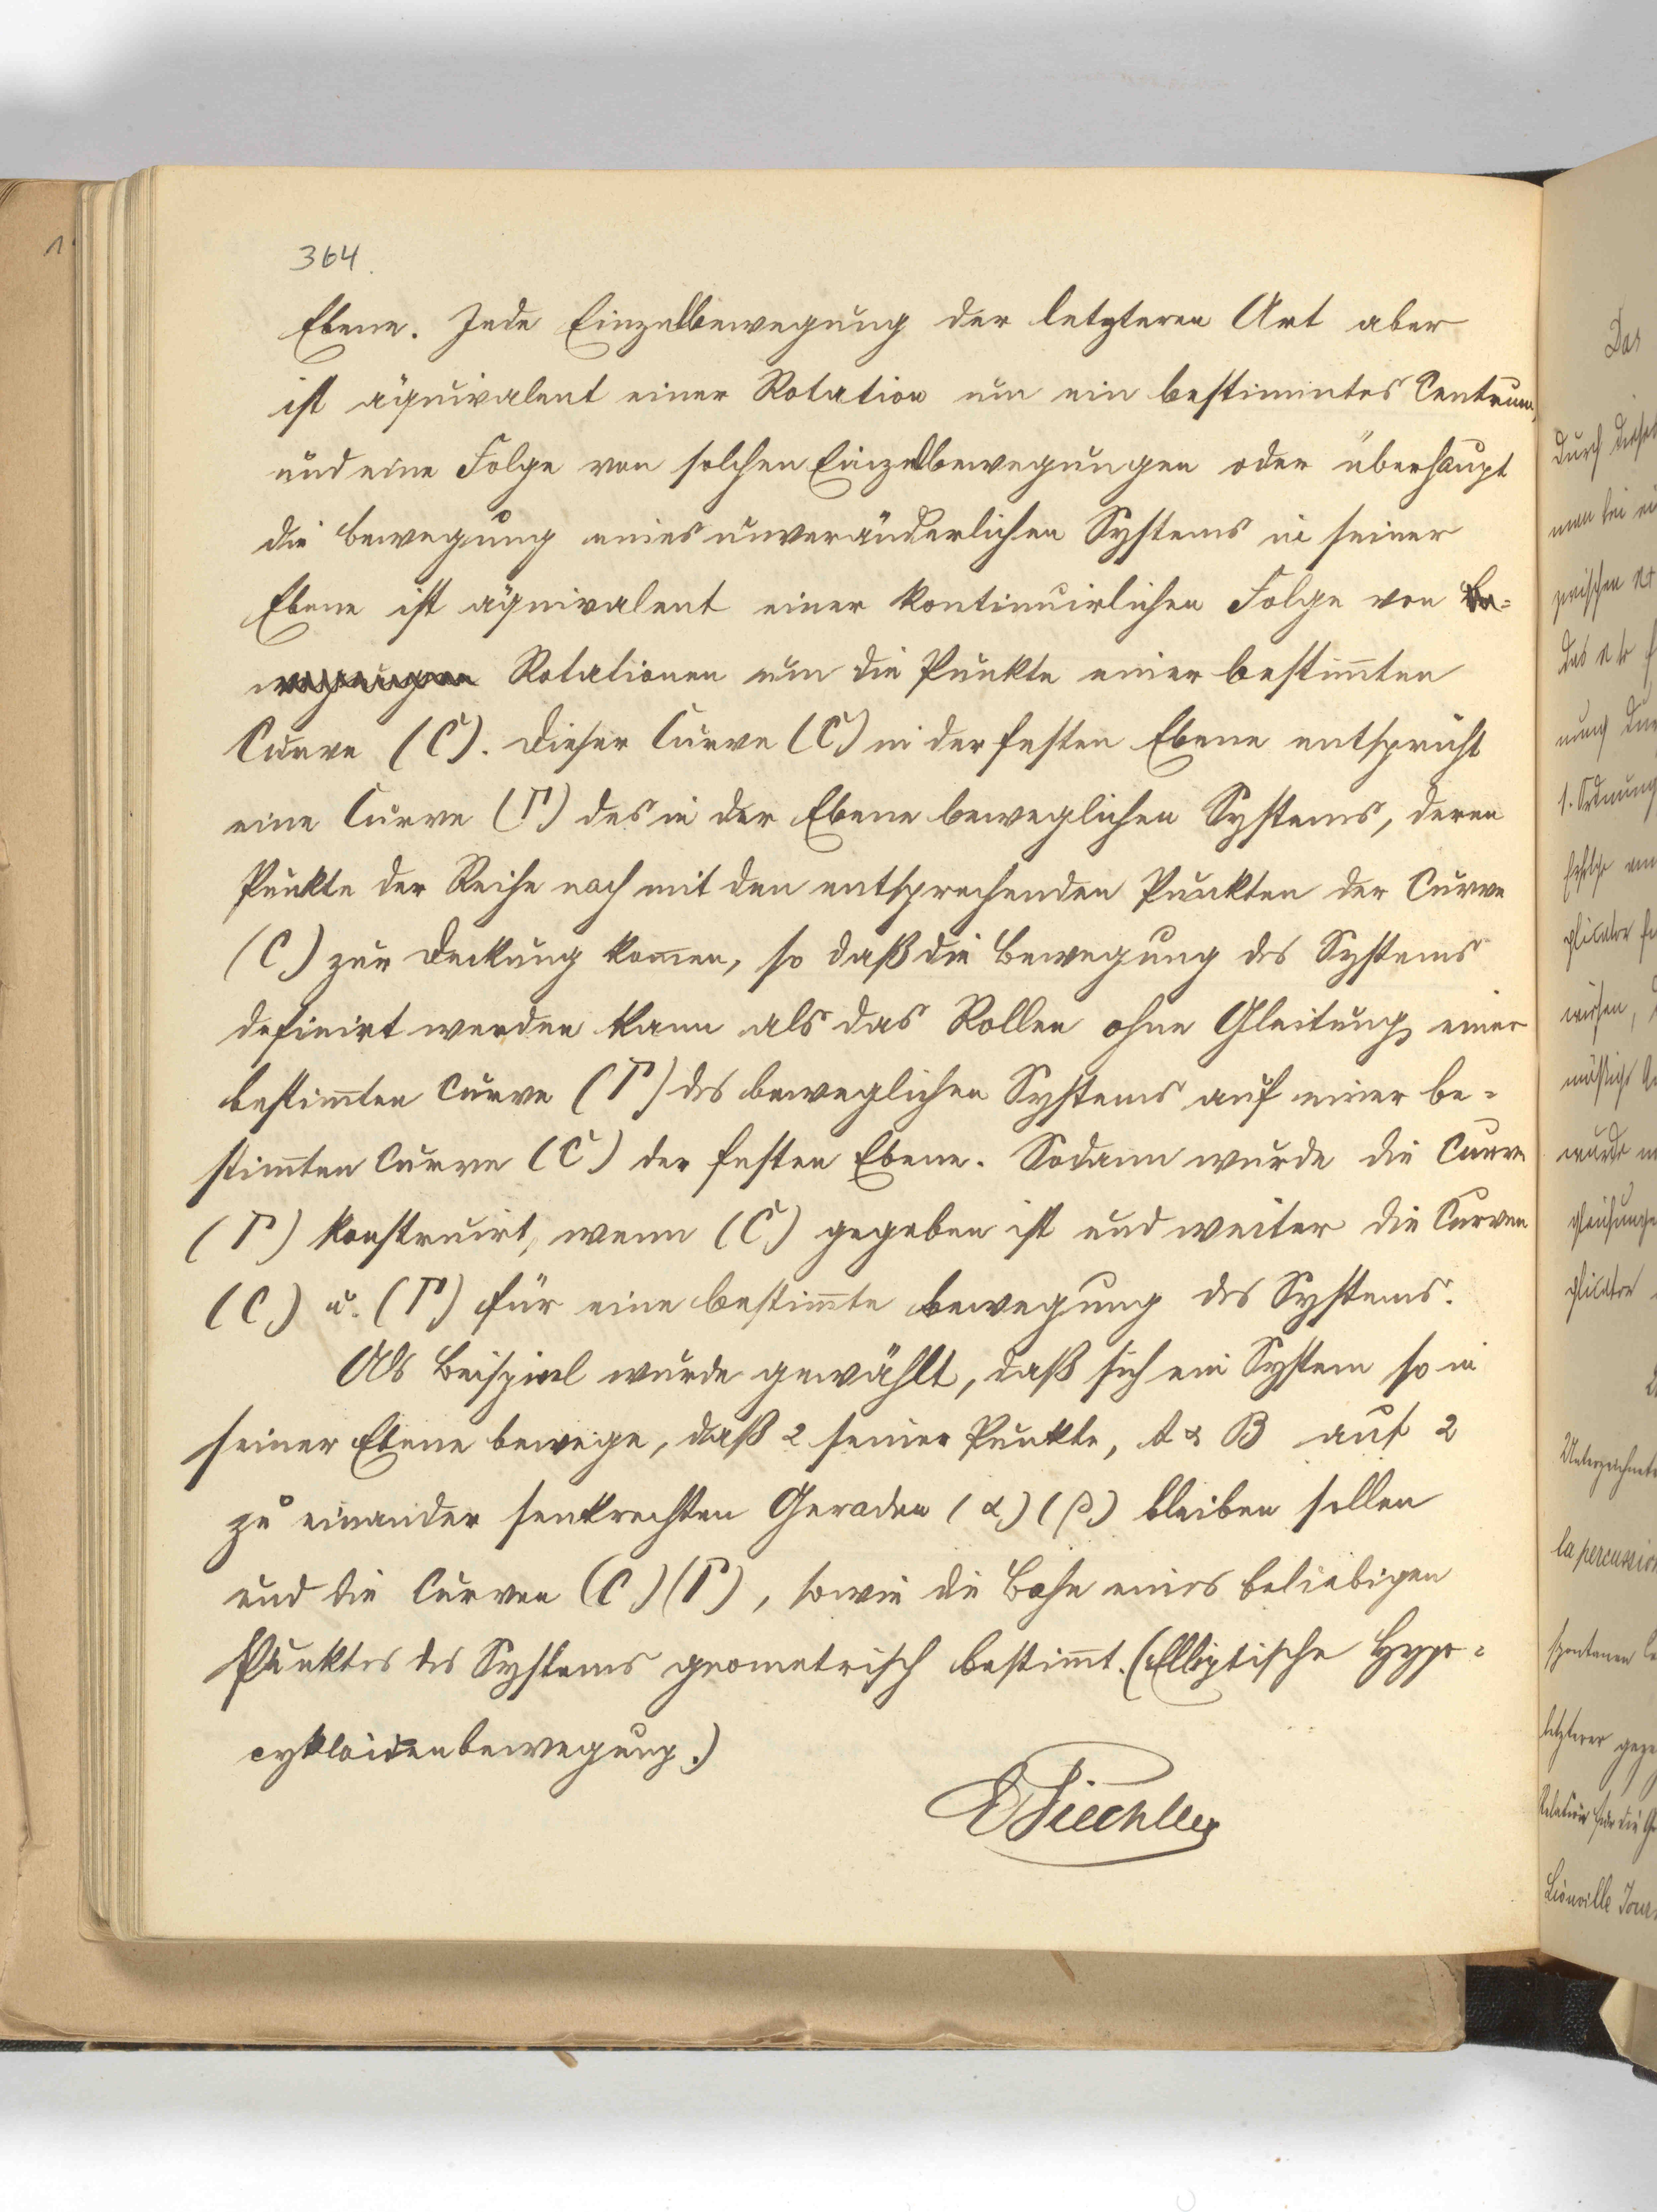 364.
Ebene. Jede Einzelbewegung der letzteren Art aber
ist äquivalent einer Rotation um ein bestimmtes Centrum,
und eine Folge von solchen Einzelbewegungen oder überhaupt
die Bewegung eines unveränderlichen Systems in seiner
Ebene ist äquivalent einer kontinuirlichen Folge von Be-
wegungen Rotationen um die Punkte einer bestim̅ten
Curve (C). Dieser Curve (C) in der festen Ebene entspricht
eine Curve (Γ) des in der Ebene beweglichen Systems, deren
Punkte der Reihe nach mit den entsprechenden Punkten der Curve
(C) zur Deckung kom̅en, so daß die Bewegung des Systems
definirt werden kann als das Rollen ohne Gleitung einer
bestim̅ten Curve (Γ) des beweglichen Systems auf einer be-
stim̅ten Curve (C) der festen Ebene. Sodann wurde die Curve
(Γ) konstruirt, wenn (C) gegeben ist und weiter die Curven
(C) u. (Γ) für eine bestim̅te Bewegung des Systems.
Als Beispiel wurde gewählt, daß sich ein System so in
seiner Ebene bewege, daß 2 seiner Punkte, A & B auf 2
zu einander senkrechten Geraden (α) (β) bleiben sollen
und die Curven (C) (Γ), sowie die Bahn eines beliebigen
Punktes des Systems geometrisch bestim̅t. (Elliptische Hypo-
cykloidenbewegung.)
Das
durch dieses
man bei
zwischen
1. Ordnung
wurde
Unterzeichnete
la percussion
spontanen
letzterer
Relation für die
Liouville Jour.